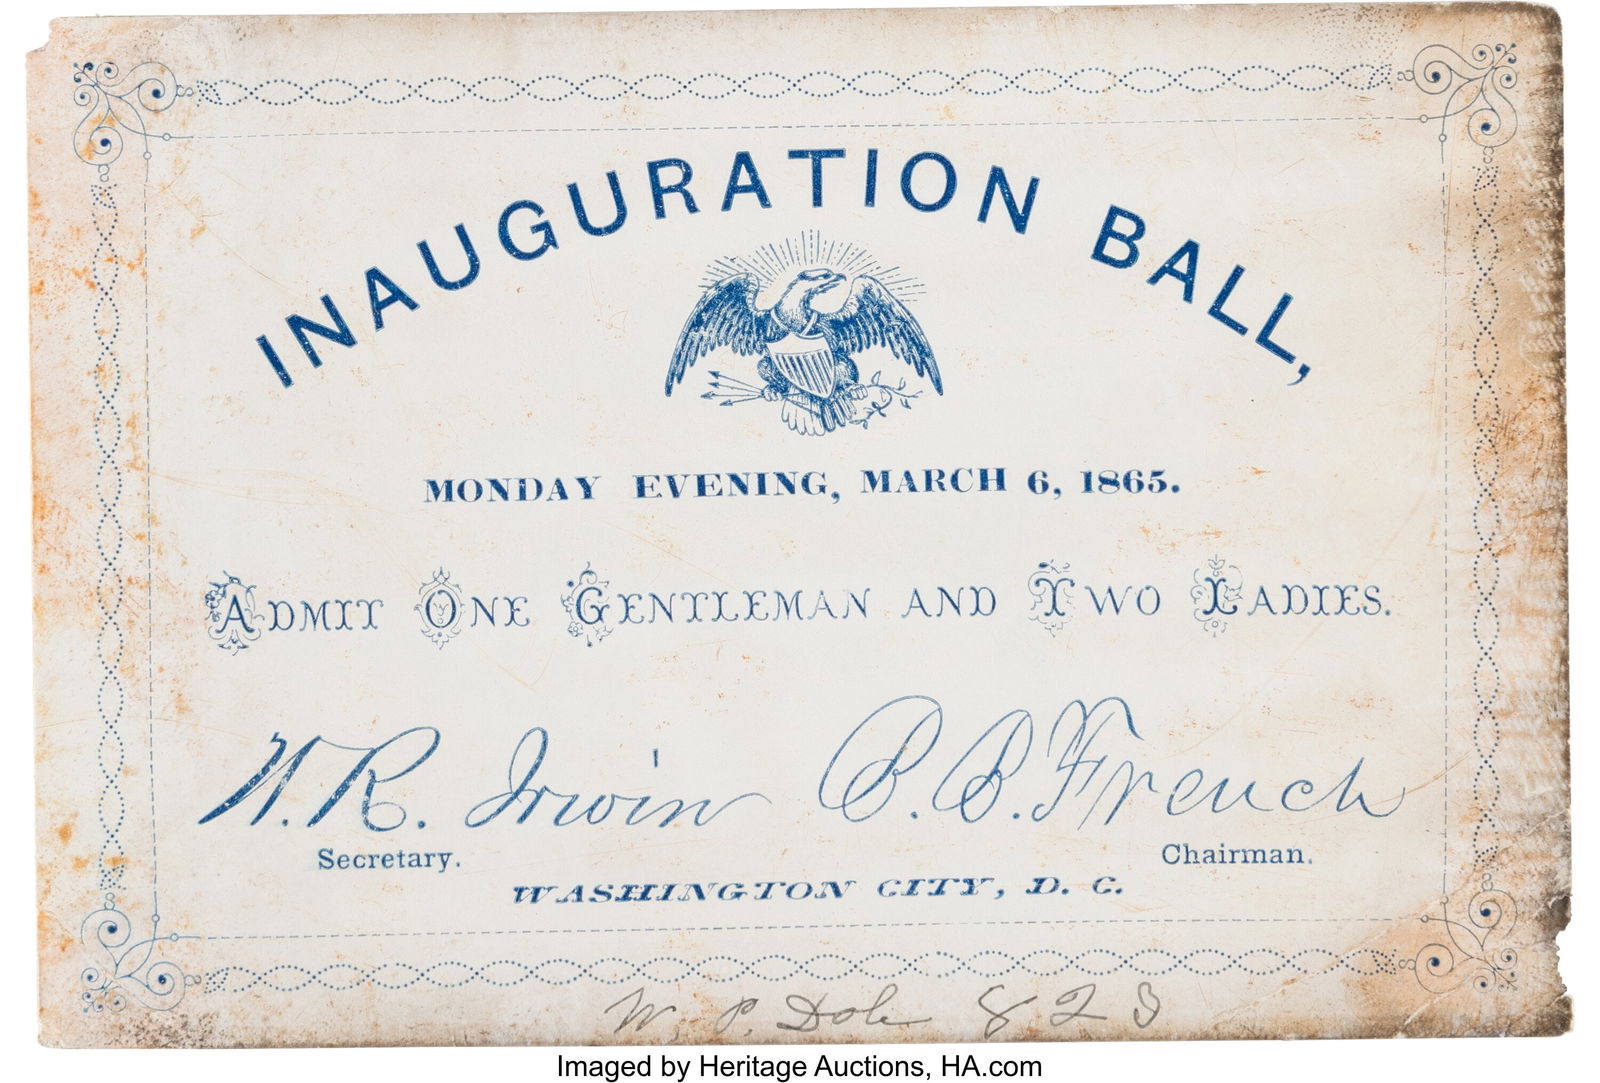 INAUGURATION BALL,
MONDAY EVENING, MARCH 6, 1865.
ADMIT ONE GENTLEMAN AND TWO LADIES.
W. R. Irwin B. B. French
Secretary. Chairman.
WASHINGTON CITY, D. C.
W. P. Dole 823
Imaged by Heritage Auctions, HA.com